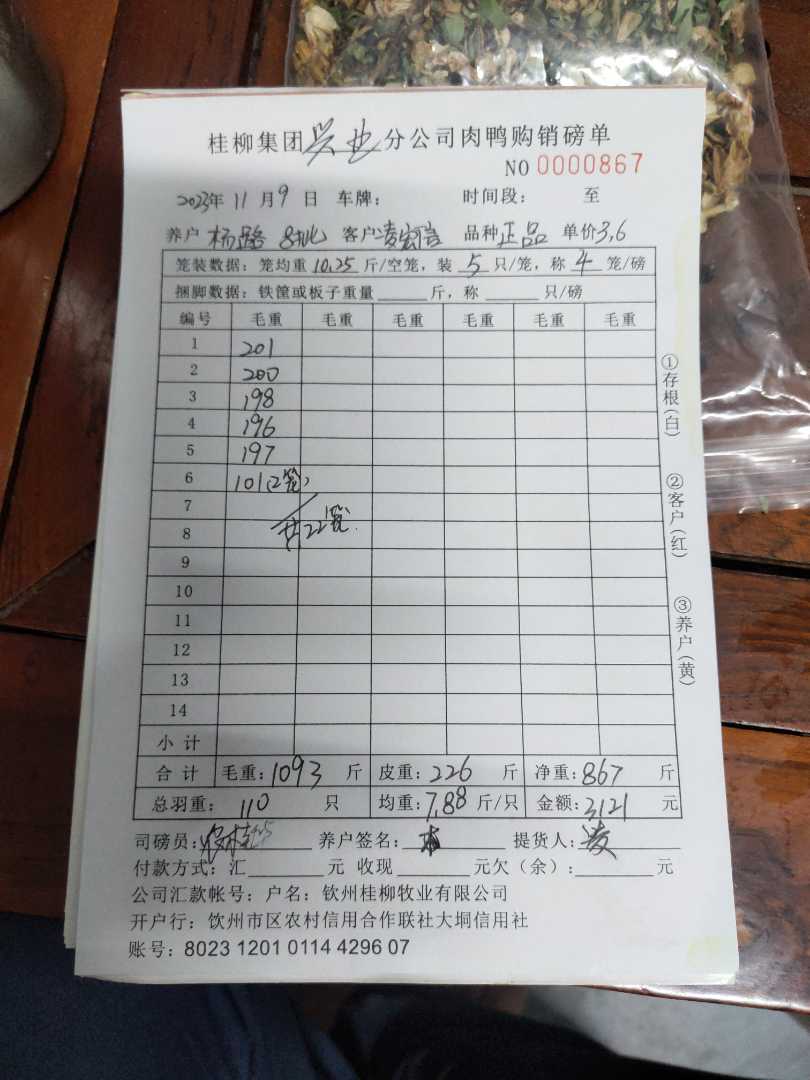 桂柳集团兴业分公司肉鸭购销磅单
NO 0000867
2023年11月9日 车牌: 时间段: 至
养户 杨路 8批 客户凌宏信 品种正品 单价3.6
笼装数据: 笼均重10.25斤/空笼, 装5只/笼, 称4笼/磅
捆脚数据: 铁筐或板子重量______斤, 称______只/磅
编号 毛重 毛重 毛重 毛重 毛重 毛重
1 201
2 200
3 198
4 196
5 197
6 101(2笼)
7
8 共22笼
9
10
11
12
13
14
小计
合计 毛重:1093斤 皮重:226斤 净重:867斤
总羽重: 110只 均重:7.88斤/只 金额:3121元
司磅员: 养户签名: 提货人:凌
付款方式: 汇______元 收现______元欠(余):______元
公司汇款帐号: 户名: 钦州桂柳牧业有限公司
开户行: 饮州市区农村信用合作联社大垌信用社
账号: 8023 1201 0114 4296 07
①存根(白)
②客户(红)
③养户(黄)